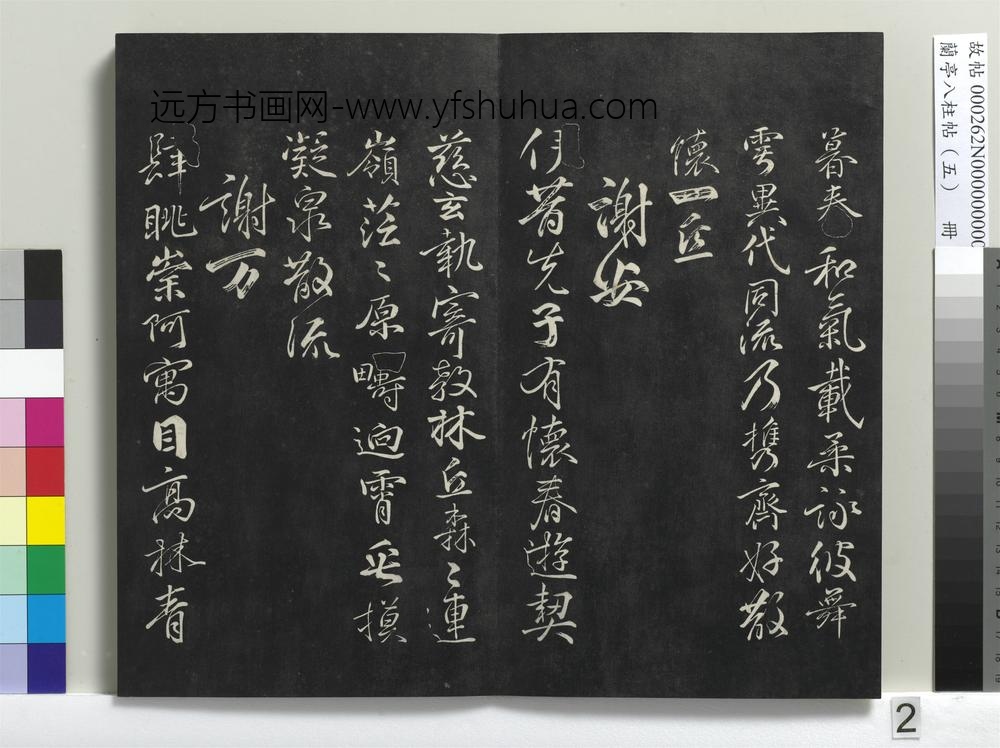 远方书画网-www.yfshuhua.com
暮春和氣載柔詠彼舞
雩異代同流乃携齊好散
懷一丘
謝安
伊昔先子有懷春遊契
慈玄執寄敖林丘森〻連
嶺茫〻原疇迥霄垂摸
凝泉散流
謝万
肆眺崇阿寓目高林青
故帖 000262N00000000
蘭亭八柱帖（五） 冊
2